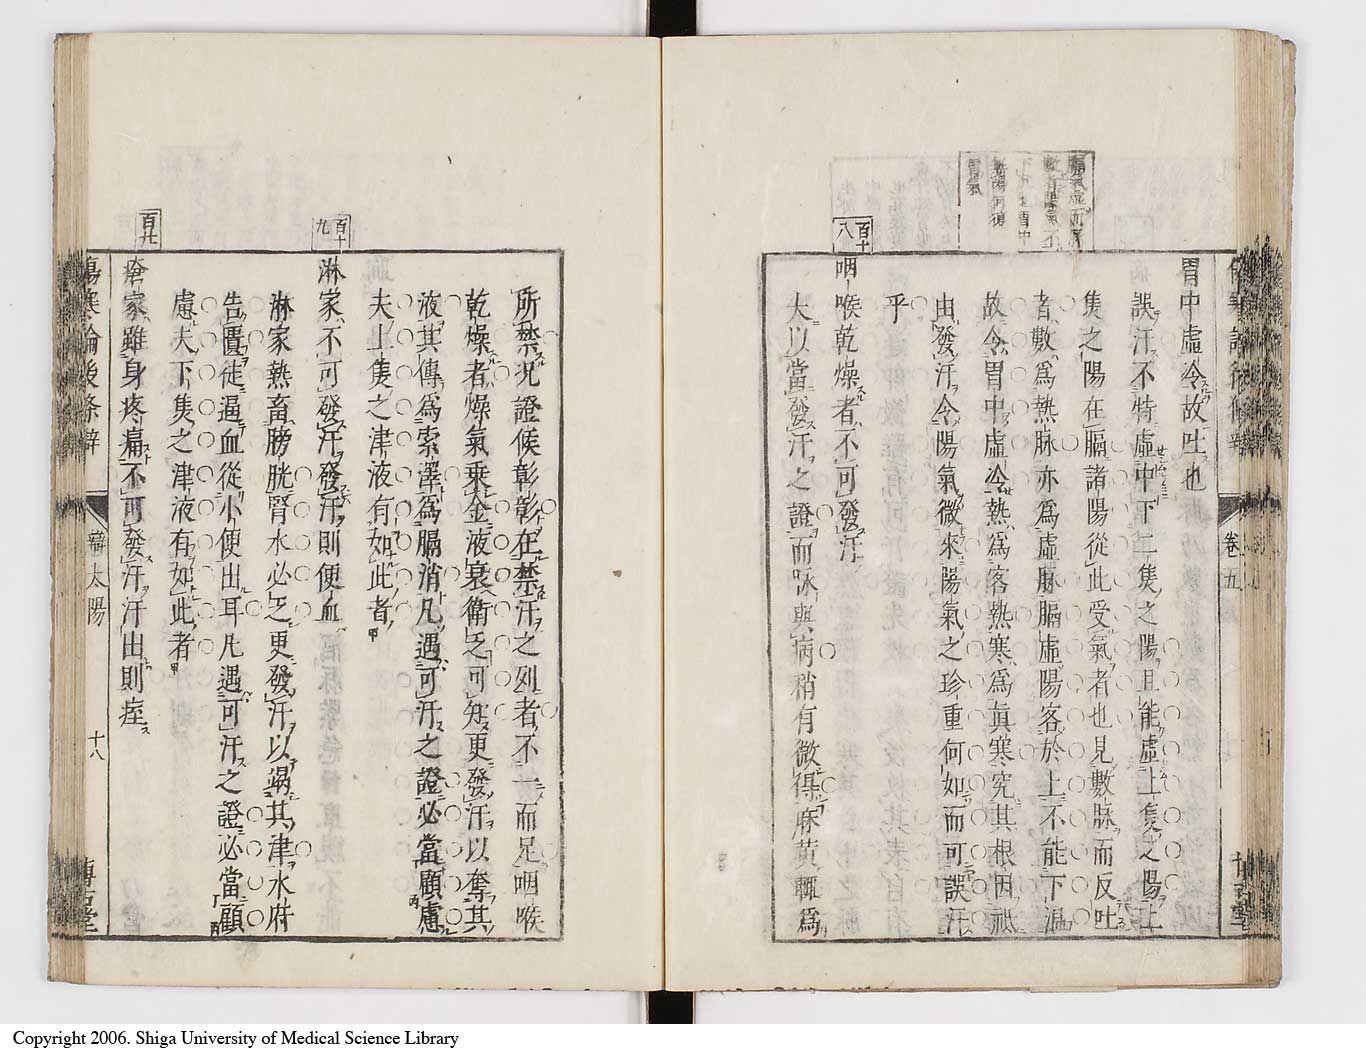 卷五
胃中虛冷故吐也
誤汗不特虛中下二焦之陽且能虛上焦之陽上
焦之陽在膈諸陽從此受氣者也見數脉而反吐
者數爲熱脉亦爲虛脉膈虛陽客於上不能下溫
故令胃中虛冷熱爲客熱寒爲真寒究其根因祗
由發汗令陽氣微來陽氣之珍重何如而可誤汗
乎
百十八
咽喉乾燥者不可發汗
大以當發汗之證而咏與病稍有微得麻黄輒爲
所禁况證候彰彰在禁汗之列者不一而足咽喉
乾燥者燥氣乘金液衰衛乏可知更發汗以奪其
液其傳爲索澤爲膈消凡遇可汗之證必當顧慮
夫上焦之津液有如此者
百十九
淋家不可發汗發汗則便血
淋家熱畜膀胱腎水必乏更發汗以竭其津水府
告匱徒逼血從小便出耳凡遇可汗之證必當顧
慮夫下焦之津液有如此者
瘡家雖身疼痛不可發汗汗出則痓
傷寒論後條辨
辯太陽
十八
博古堂
Copyright 2006. Shiga University of Medical Science Library